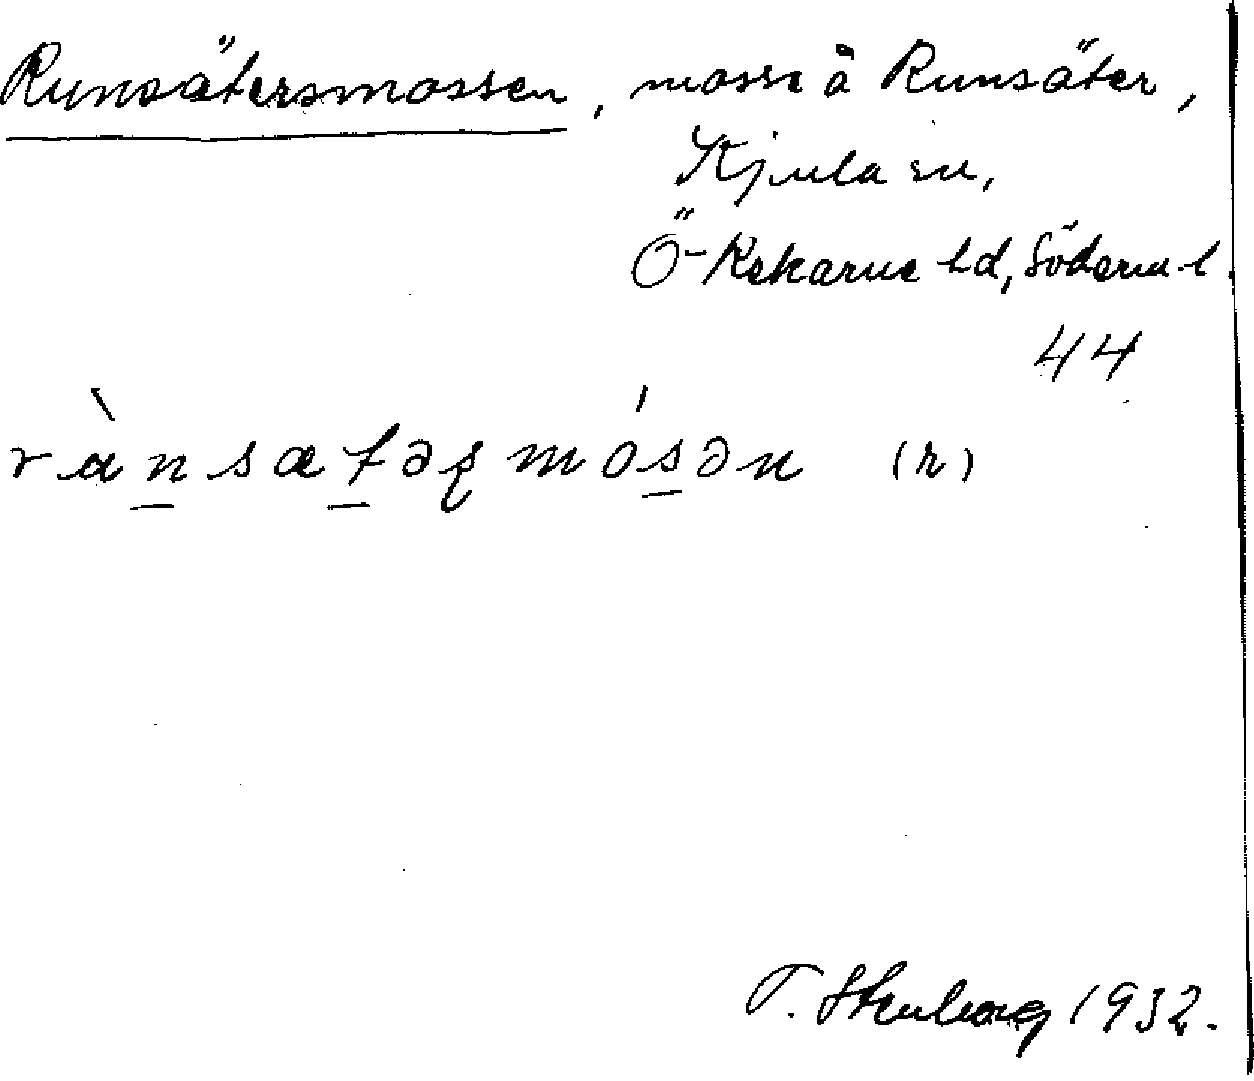 Runsätersmossen, mosse å Runsäter,
Kjula sn,
Ö-Rekarne hd, Söderm. l.
44
rànsætəʂmósən (r)
T. Stenborg 1932.